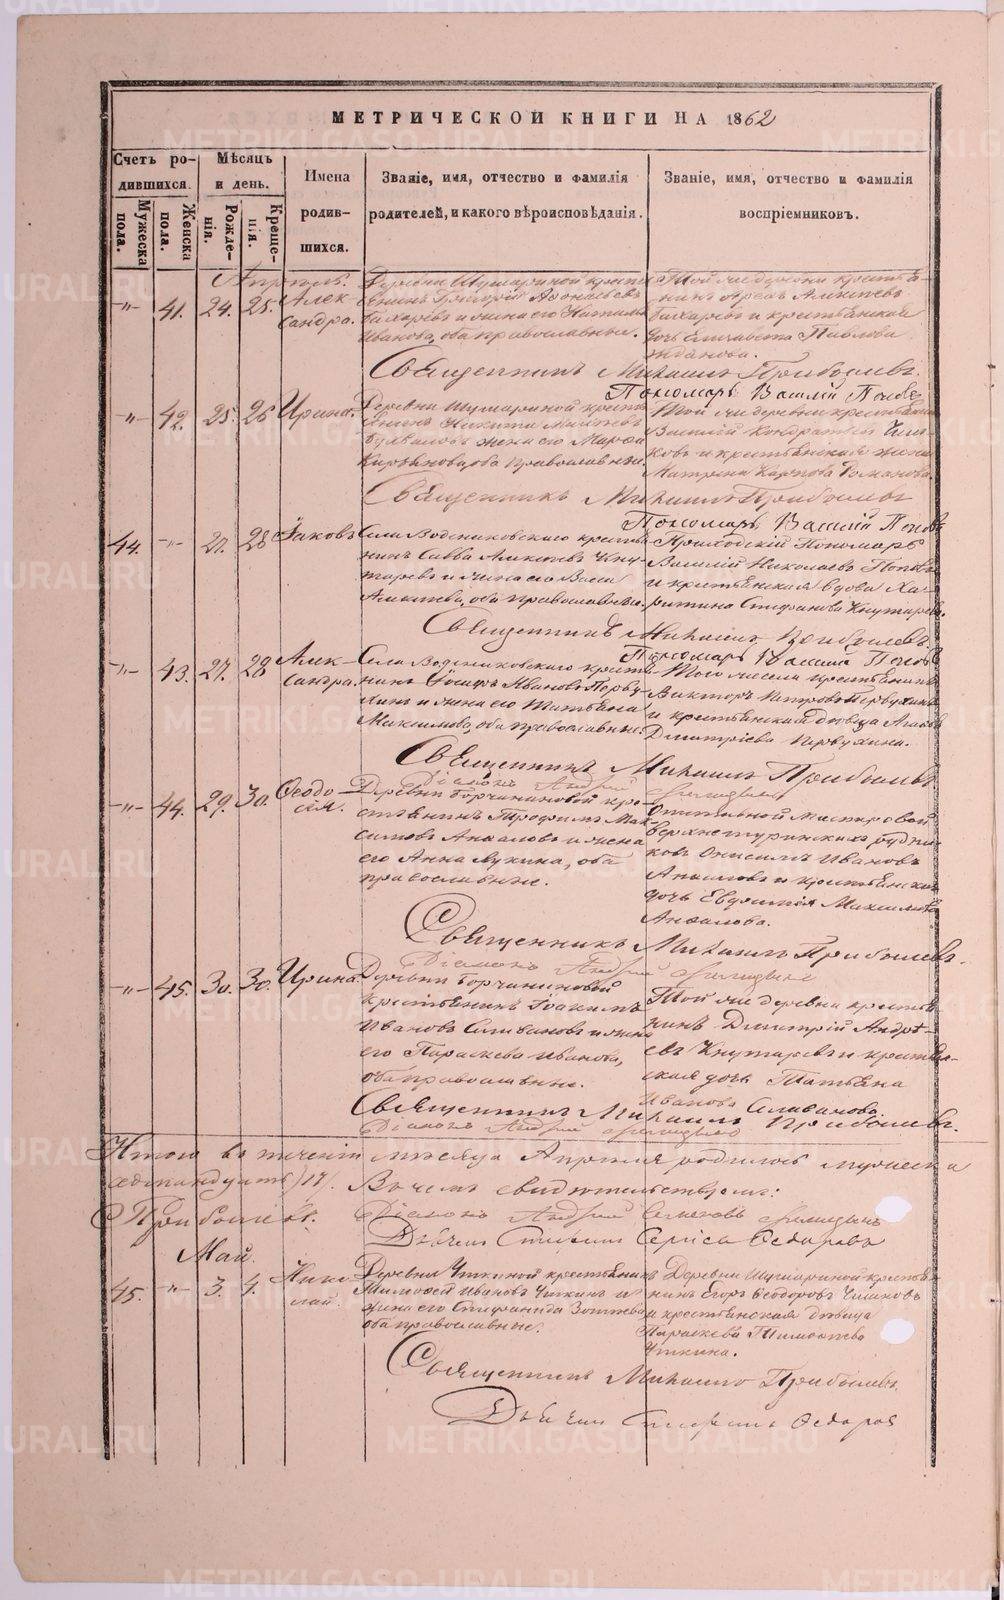 МЕТРИЧЕСКОЙ КНИГИ НА 1862
Счетъ ро-
дившихся.
Мужеска пола.
Женска пола.
Мѣсяцъ
и день.
Рожде-
нія.
Креще-
нія.
Имена
родив-
шихся.
Званіе, имя, отчество и фамилія
родителей, и какого вѣроисповѣданія.
Званіе, имя, отчество и фамилія
воспріемниковъ.
Апрѣль.
-"- 41. 24. 25. Алек
сандра.
Деревни Шумариной кресть
янинъ Григорій
и жена его
Иванова, оба православные.
Той же деревни крестья-
нинъ Алексѣевъ
и крестьянская
дочь Елисавета Павлова
Жданова.
Священникъ Михаилъ Прибылевъ.
Пономарь Василій Поповъ
-"- 42. 25. 26 Ирина.
Деревни Шумариной кресть
янинъ Никита
жена его Марѳа
оба православные.
Той же деревни крестьянинъ
Василій Кондратьевъ
ковъ и крестьянская жена
Матрена Карпова Романова.
Священникъ Михаилъ Прибылевъ
Пономарь Василій Поповъ
44. -"- 27. 28 Іаковъ
Села Водениковскаго крестья
нинъ Савва Алексѣевъ Кну
таревъ и жена его Васса
Алексѣева, оба православные.
Приходскій Пономарь
Василій Николаевъ Поповъ
и крестьянская вдова Ха-
ритина Стефанова Кнутарева.
Священникъ Михаилъ Прибылевъ.
Пономарь Василій Поповъ
-"- 43. 27. 28 Алек-
сандра.
Села Водениковскаго крестья
нинъ Іосифъ Ивановъ Перву
хинъ и жена его Татьяна
Максимова, оба православные.
Того же села крестьянинъ
Викторъ Петровъ Первухинъ
и крестьянская дѣвица
Дмитріева Первухина.
Священникъ Михаилъ Прибылевъ.
Діаконъ Андрей
-"- 44. 29. 30. Ѳеодо-
сія.
Деревни Борчаниновой кре-
стьянинъ Трофимъ Мак-
симовъ и жена
его Анна Лукина, оба
православные.
Мастеровой
Верхнетуринскихъ рудни-
ковъ Онисимъ Ивановъ
и крестьянская
дочь Евдокія Максимова
Священникъ Михаилъ Прибылевъ.
Діаконъ Андрей
-"- 45. 30. 30. Ирина.
Деревни Борчаниновой
крестьянинъ Іоакимъ
Ивановъ Селивановъ и жена
его Параскева Иванова,
оба православные.
Той же деревни крестья
нинъ Дмитрій Андрѣ-
евъ Кнутаревъ и крестьян-
ская дочь Татьяна
Иванова Селиванова.
Священникъ Михаилъ Прибылевъ.
Діаконъ Андрей
Итого въ теченіи мѣсяца Апрѣля родилось мужеска
/17/. Въ чемъ свидѣтельствуемъ:
Прибылевъ. Діаконъ Андрей Семеновъ
Дьячекъ Стефанъ Ѳедоровъ
Май.
45. -"- 3. 4. Нико
лай.
Деревни Уткиной крестьянинъ
Тимоѳей Ивановъ Уткинъ и
жена его Стефанида Зотеева
оба православные.
Деревни Шумариной крестья
нинъ Егоръ Ѳеодоровъ Чижовъ
и крестьянская дѣвица
Параскева Тимоѳеева
Уткина.
Священникъ Михаилъ Прибылевъ.
Дьячекъ Стефанъ Ѳедоровъ
METRIKI.GASO-URAL.RU